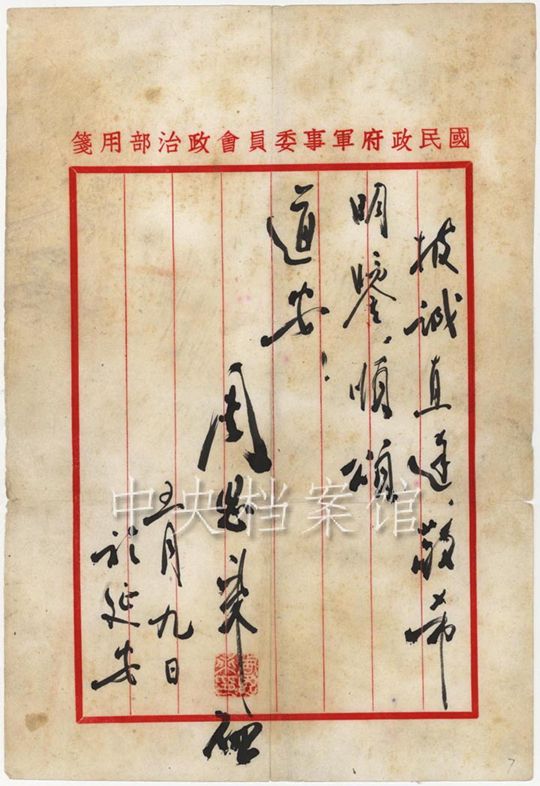 國民政府軍事委員會政治部用箋
披誠直達、敬希
明鑒、順頌
道安！
周恩來 啟
五月九日
於延安
中央档案馆
7